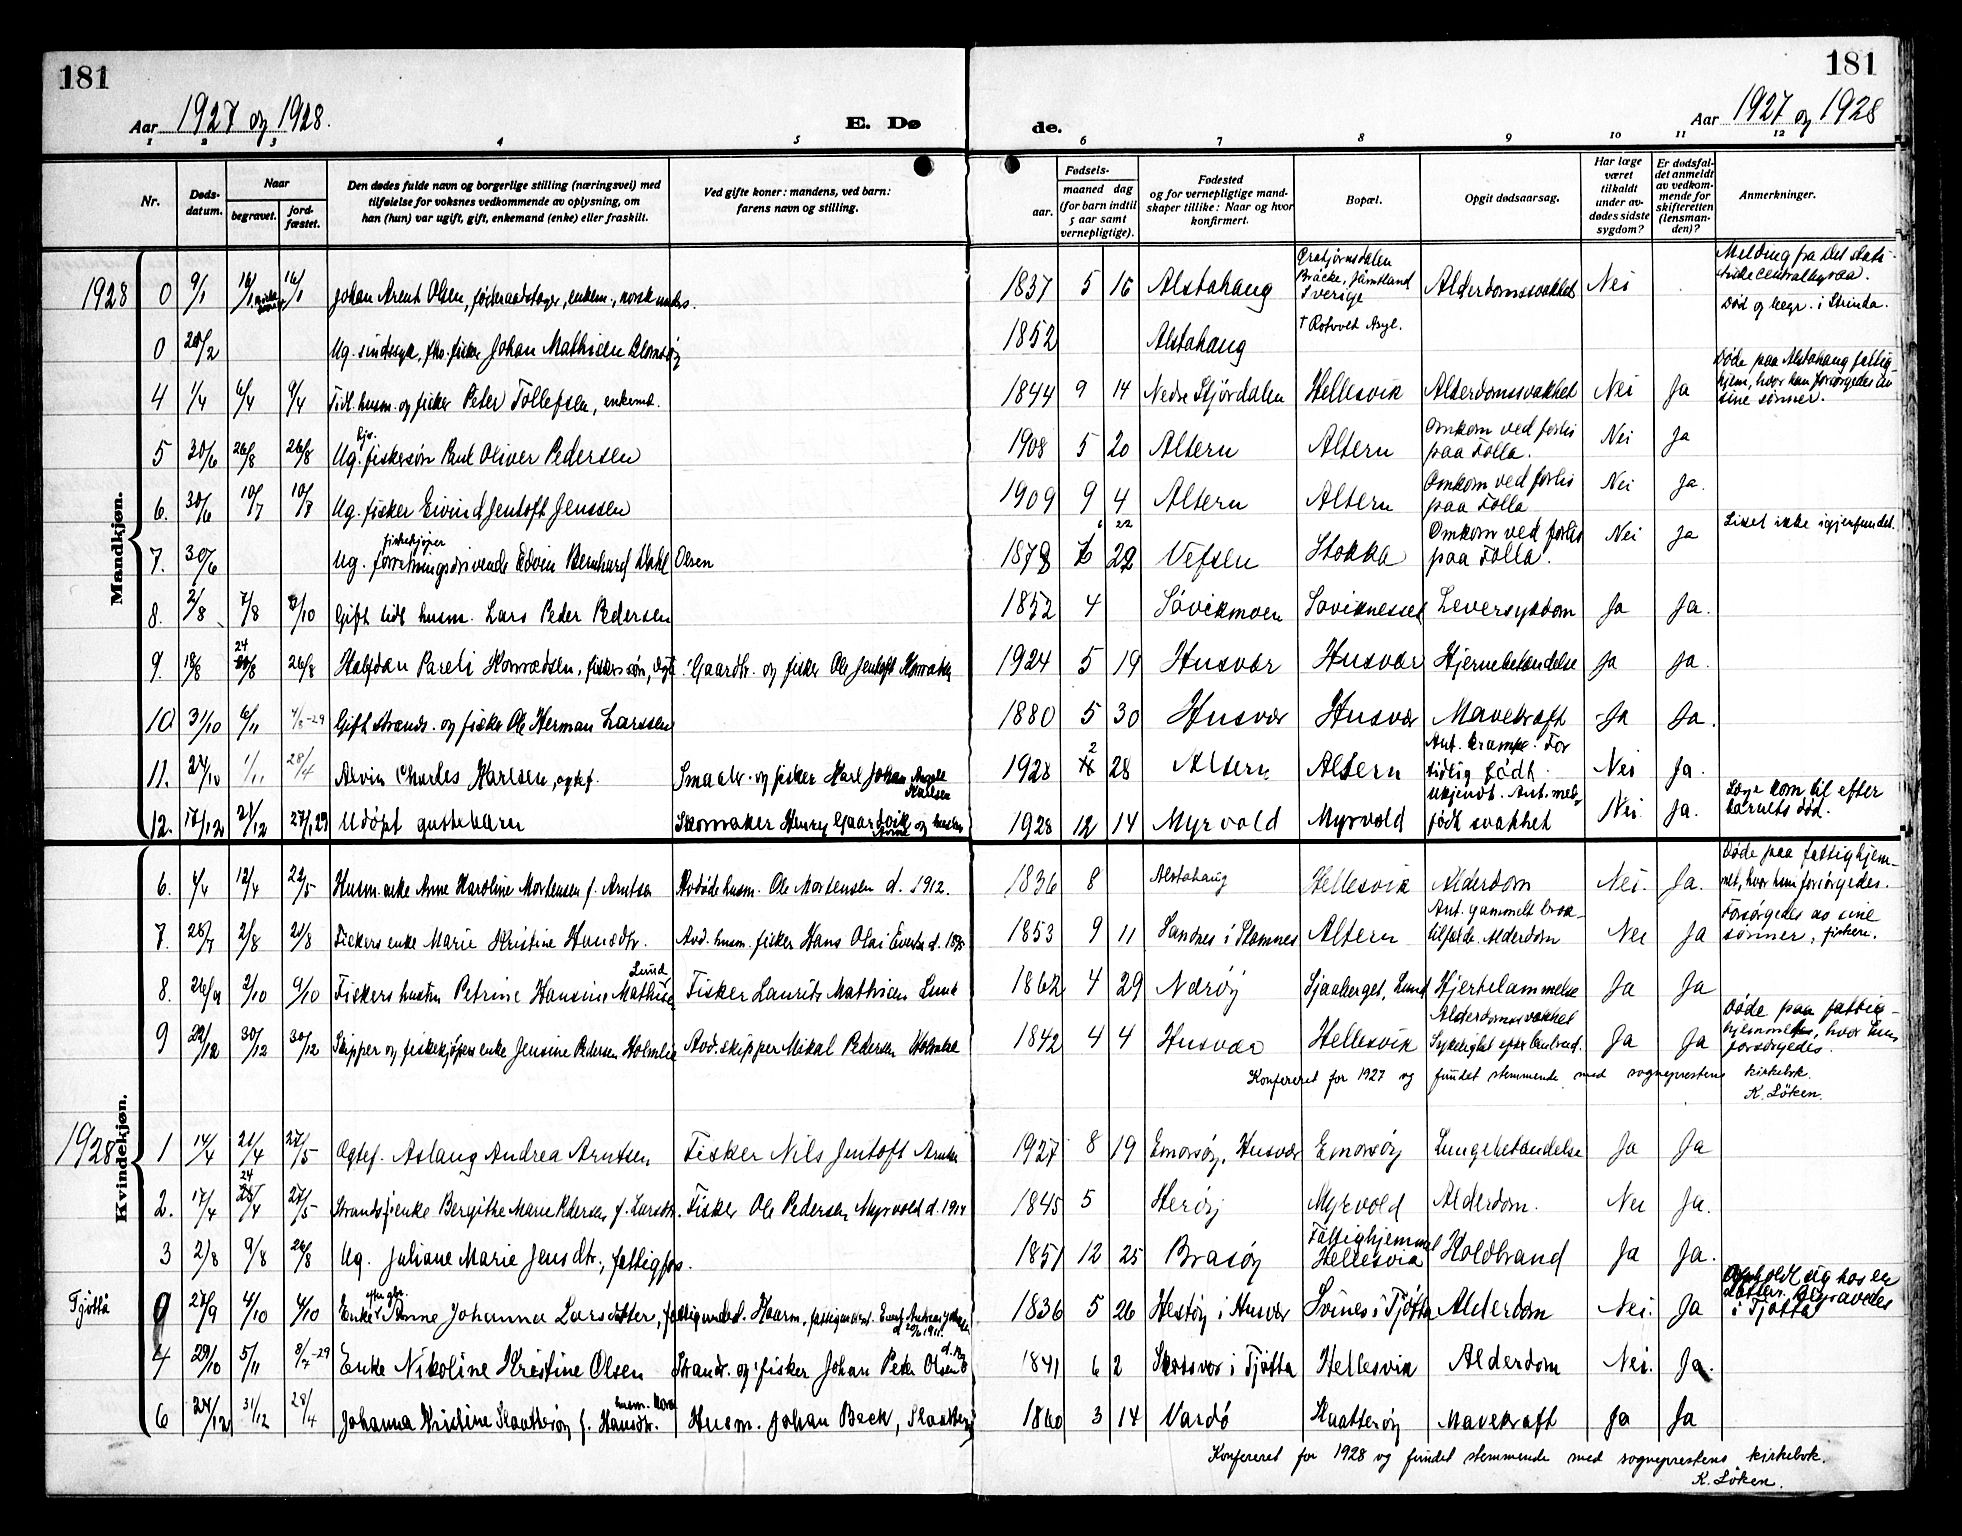 181
181
Aar 1927 og 1928.
E. Dø
de.
Aar 1927 og 1928
1 2 3 4 5 6 7 8 9 10 11 12
Nr.
Døds-
datum.
Naar
begravet.
jord-
fæstet.
Den dødes fulde navn og borgerlige stilling (næringsvei) med
tilføielse for voksnes vedkommende av oplysning, om
han (hun) var ugift, gift, enkemand (enke) eller fraskilt.
Ved gifte koner: mandens, ved barn:
farens navn og stilling.
Fødsels-
aar.
maaned dag
(for barn indtil
5 aar samt
vernepligtige).
Fødested
og for vernepligtige mand-
skaper tillike: Naar og hvor
konfirmert.
Bopæl.
Opgit dødsaarsag.
Har læge
været
tilkaldt
under av-
dødes sidste
sygdom?
Er dødsfal-
det anmeldt
av vedkom-
mende for
skifteretten
(lensman-
den)?
Anmerkninger.
Mandkjøn.
1928 0 9/1 16/1 16/1 Johan Arent Olsen, føderaadstager, enkem., norsk 1837 5 16 Alstahaug Bräcke, Jämtland Sverige Alderdomssvakhet Nei Melding fra Det stati-
stiske centralbyraa.
0 20/2 Ug. sindssyk, fhv. fisker Johan Mathisen 1852 Alstahaug † Rotvold Asyl. Død og begr. i Strinda.
4 1/4 6/4 9/4 Tidl. husm. og fisker Peter Tollefsen, enkem. 1844 9 14 Nedre Stjørdalen Hellesvik Alderdomssvakhet Nei Ja Døde paa Alstahaug fattig-
hjem, hvor han forsørgedes av
sine sønner.
5 30/6 26/8 26/8 Ug. fiskersøn Paul Oliver Pedersen 1908 5 20 Altern Altern Omkom ved forlis paa Folla. Nei Ja
6. 30/6 10/7 10/8 Ug. fisker Eivind Jentoft Jenssen 1909 9 4 Altern Altern Omkom ved forlis paa Folla Nei Ja.
7. 30/6 Ug. fiskekjøper forretningsdrivende Edvin Bernhard Dahl Olsen 1878 6 22 29 Vefsen Stokka Omkom ved forlis paa Folla. Nei Ja Liket ikke igjenfundet.
8. 2/8 7/8 /10 Gift tidl husm. Lars Peder Pedersen 1852 4 Søvikmoen Søviknesset Leversykdom Ja Ja.
9. 18/8 24/8 26/8 Halfdan Pareli Konradsen, fiskersøn, egt. Gaardbr. og fisker Ole Jentoft Konradsen 1924 5 19 Husvær Husvær Hjernebetændelse Ja Ja.
10 31/10 6/11 4/8-29 Gift strands. og fisker Ole Herman Larssen 1880 5 30 Husvær Husvær Mavekræft Ja Ja.
11. 27/10 1/11 28/4 Arvin Charles Karlsen, egtef. Smaabr. og fisker Karl Johan Angell Karlsen 1928 2 28 Altern Altern Ant. krampe. For tidlig født. Nei Ja.
12. 17/12 21/12 27/1 29 Udøpt guttebarn Skomaker Henry Gaarsvik og hustru 1928 12 14 Myrvold Myrvold Ukjendt. Ant. med-
født svakhet Nei. Ja. Læge kom til efter
barnets død.
Kvindekjøn.
6. 4/4 12/4 22/5 Husm. enke Anne Karoline Mortensen f. Arntsen Avdøde husm. Ole Mortensen d. 1912. 1836 8 Alstahaug Hellesvik Alderdom Nei. Ja. Døde paa fattighjem-
met, hvor hun forsørgedes.
7. 28/7 2/8 21/8 Fiskers enke Marie Kristine Hansdtr. Avd. husm. fisker Hans Olai 1853 9 11 Sandnes i Stamnes Altern Ant. gammelt brok-
tilfælde. Alderdom Nei Ja Forsørgedes av sine
sønner, fiskere.
8. 26/9 2/10 9/10 Fiskers hustru Petrine Hansine Mathisen Lund Fisker Laurits Mathisen Lund 1862 4 29 Nærøy Sjaaberget, Lund Hjertelammelse Ja Ja
9 22/12 30/12 30/12 Skipper og fiskekjøpers enke Jensine Pedersen Holmbo Avd. skipper Mikal Pedersen Holmbo 1842 4 4 Husvær Hellesvik Alderdomssvakhet Sykelighet efter benbrud. Ja Ja Døde paa fattig-
hjemmet, hvor hun
forsørgedes.
Konfereret for 1927 og fundet stemmende med sogneprestens kirkebok.
K. Løken.
1928 1 14/4 21/4 27/5 Egtef. Aslaug Andrea Arntsen Fisker Nils Jentoft Arntsen 1927 8 19 Emarsøy, Husvær Emarsøy Lungebetændelse Ja Ja
2. 17/4 24/4 27/5 Strandsenke Bergithe Marie Pedersen f. Larsdtr. Fisker Ole Pedersen Myrvold d. 1914 1845 5 Herøy Myrvold Alderdom. Nei Ja.
3 2/8 9/8 26/8 Ug. Juliane Marie Jensdtr., fattigfors. 1851 12 25 Brasøy Fattighjemmet Hellesvik Koldbrand Ja Ja.
Tjøtta 0 27/9 4/10 4/10 Enke efter gbr. Anne Johanna Larsdatter, 1836 5 26 Hestøy i Husvær Svines i Tjøtta Alderdom Nei. Ja Opholdt sig hos en
datter. Begravedes
i Tjøtta
4 29/10 5/11 8/7-29 Enke Nikoline Kristine Olsen Strands. og fisker Johan Peter Olsen 1841 6 2 i Tjøtta Hellesvik Alderdom Nei. Ja.
6 24/12 31/12 28/4 Johanna Kristine Slaatterøy f. Hansdtr. Husm. Johan Beck, Slaatterøy 1860 3 14 Vardø Slaatterøy Mavekræft Ja Ja
Konfereret for 1928 og fundet stemmende med sogneprestens kirkebok.
K. Løken.